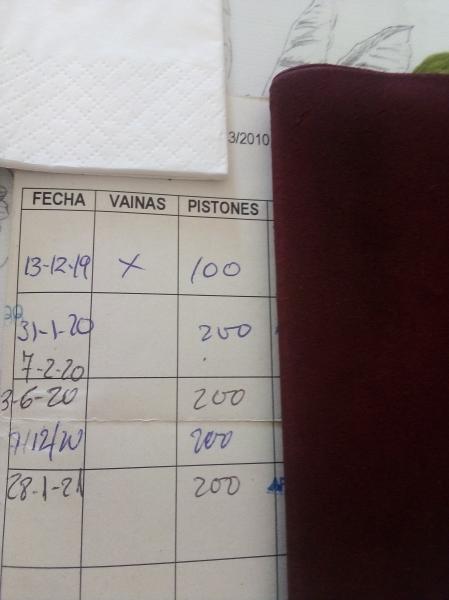 3/2010
FECHA VAINAS PISTONES
13-12-19 X 100
31-1-20 200
7-2-20
3-6-20 200
7/12/20 200
28-1-21 200